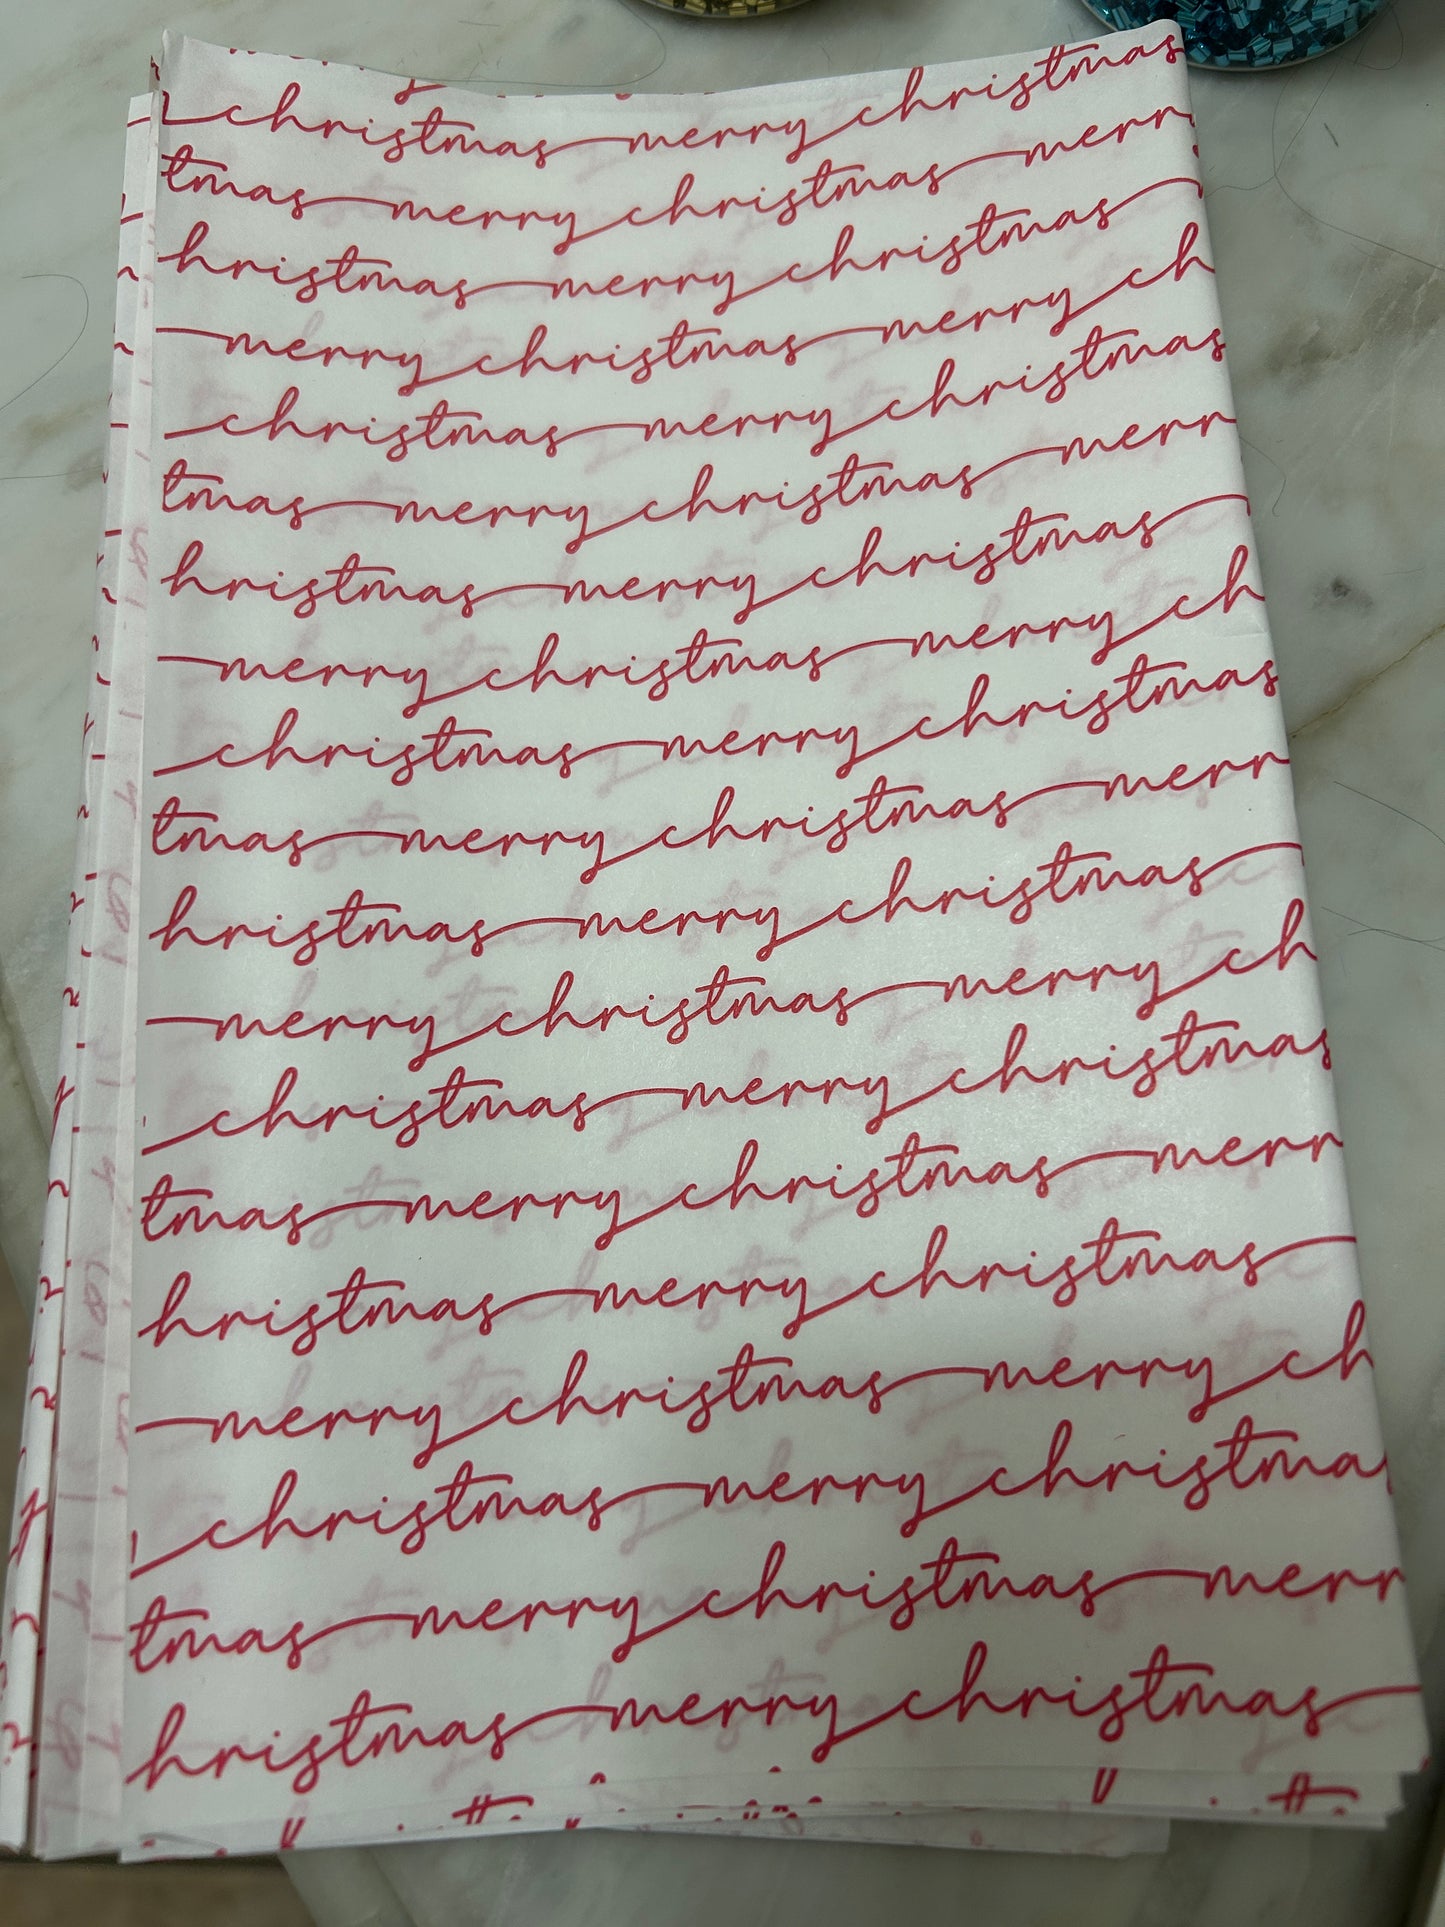 christmas merry christmas
tmas merry christmas merr
hristmas merry christmas
merry christmas merry ch
christmas merry christmas
tmas merry christmas merr
hristmas merry christmas
merry christmas merry ch
christmas merry christmas
tmas merry christmas merr
hristmas merry christmas
merry christmas merry ch
christmas merry christmas
tmas merry christmas merr
hristmas merry christmas
merry christmas merry ch
christmas merry christma
tmas merry christmas merr
hristmas merry christmas